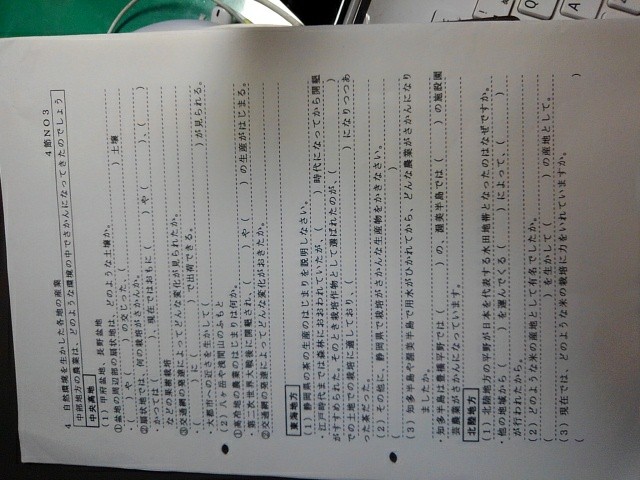 4節NO3
4　自然環境を生かした各地の産業
中部地方の農業は、どのような環境の中でさかんになってきたのでしょう
中央高地
(1) 甲府盆地、長野盆地
①盆地の周辺部の扇状地は、どのような土壌か。
・(　　　)や(　　　)の混じった、(　　　)土壌
②扇状地では、何の栽培がさかんか。
・かつては(　　　)、現在ではおもに(　　　)や(　　　)、(　　　)
などの果樹栽培
③交通網の発達によってどんな変化が見られたか。
・(　　　)に(　　　)で出荷できる。
・大都市への近さを生かして(　　　)が見られる。
(2) 八ヶ岳や浅間山のふもと
①高冷地の農業のはじまりは何か。
・第二次世界大戦後に開墾され、(　　　)や(　　　)の生産がはじまる。
②交通網の発達によってどんな変化がおきたか。
東海地方
(1) 静岡県の茶の生産のはじまりを説明しなさい。
・江戸時代までは森林におおわれていたが、(　　　)時代になってから開墾
がすすめられた。そのとき栽培作物として選ばれたのが、(　　　)になりつつあ
での土地での栽培に適しており、(　　　)
った茶だった。
(2) その他に、静岡県で栽培がさかんな生産物をかきなさい。
(3) 知多半島や渥美半島で用水がひかれてから、どんな農業がさかんになり
ましたか。
・知多半島や豊橋平野では(　　　)の、渥美半島では(　　　)の施設園
芸農業がさかんになっています。
北陸地方
(1) 北陸地方の平野が日本を代表する水田地帯となったのはなぜですか。
・他の地域から(　　　)を運んでくる(　　　)によって、(　　　)
が行われたから。
(2) どのような米の産地として有名でしたか。
(　　　)を生かして(　　　)の産地として。
(3) 現在では、どのような米の栽培に力をいれていますか。
(　　　)